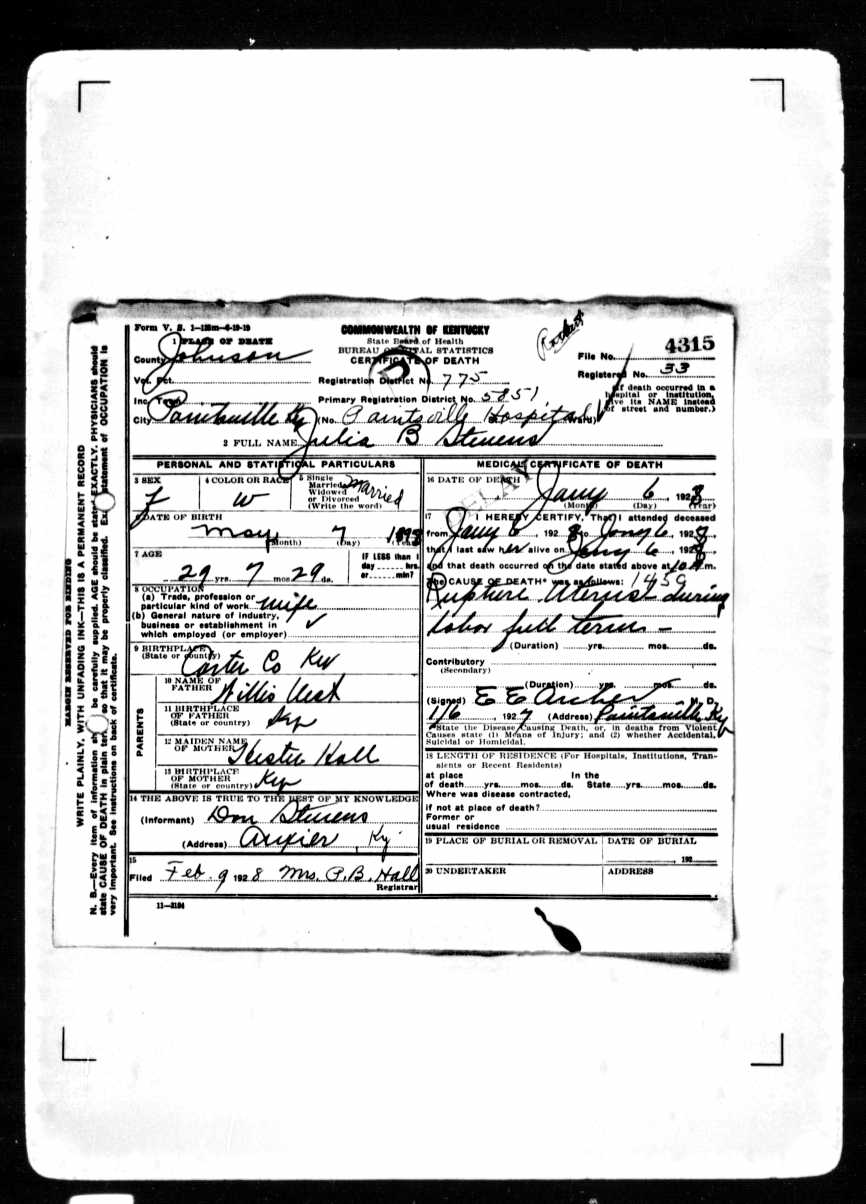 Form V. S. 1—125m—6-19-19
COMMONWEALTH OF KENTUCKY
State Board of Health
BUREAU OF VITAL STATISTICS
CERTIFICATE OF DEATH
1 PLACE OF DEATH
County Johnson
Vot. Pct.
Inc. Town
City Paintsville Ky (No. Paintsville Hospital Ward)
Registration District No. 775
Primary Registration District No. 5851
File No. 4315
Registered No. 33
(If death occurred in a
hospital or institution,
give its NAME instead
of street and number.)
2 FULL NAME Julia B Stevens
PERSONAL AND STATISTICAL PARTICULARS
3 SEX
f
4 COLOR OR RACE
W
5 Single
Married
Widowed
or Divorced
(Write the word)
Married
6 DATE OF BIRTH
May 7 1898
(Month) (Day) (Year)
7 AGE
29 yrs. 7 mos. 29 ds.
IF LESS than 1
day ..... hrs.
or ..... min?
8 OCCUPATION
(a) Trade, profession or
particular kind of work wife
(b) General nature of industry,
business or establishment in
which employed (or employer)
9 BIRTHPLACE
(State or country) Carter Co Ky
PARENTS
10 NAME OF
FATHER Willis West
11 BIRTHPLACE
OF FATHER
(State or country) Ky
12 MAIDEN NAME
OF MOTHER Hester Hall
13 BIRTHPLACE
OF MOTHER
(State or country) Ky
14 THE ABOVE IS TRUE TO THE BEST OF MY KNOWLEDGE
(Informant) Don Stevens
(Address) Auxier, Ky
15
Filed Feb. 9 1928 Mrs. P.B. Hall
Registrar
11—3184
MEDICAL CERTIFICATE OF DEATH
16 DATE OF DEATH
Jany 6, 1928
(Month) (Day) (Year)
DELAY
17 I HEREBY CERTIFY, That I attended deceased
from Jany 6, 1928 to Jany 6, 1928,
that I last saw her alive on Jany 6, 1928
and that death occurred on the date stated above at 10 A m.
The CAUSE OF DEATH* was as follows: 1459
Rupture Uterus during
labor full term —
(Duration) yrs. mos. ds.
Contributory
(Secondary)
(Duration) yrs. mos. ds.
(Signed) E E Archer M. D.
1/6, 1927 (Address) Paintsville Ky
*State the Disease Causing Death, or, in deaths from Violent
Causes state (1) Means of Injury; and (2) whether Accidental,
Suicidal or Homicidal.
18 LENGTH OF RESIDENCE (For Hospitals, Institutions, Tran-
sients or Recent Residents)
at place In the
of death yrs. mos. ds. State yrs. mos. ds.
Where was disease contracted,
if not at place of death?
Former or
usual residence
19 PLACE OF BURIAL OR REMOVAL DATE OF BURIAL
, 192
20 UNDERTAKER ADDRESS
MARGIN RESERVED FOR BINDING
WRITE PLAINLY, WITH UNFADING INK—THIS IS A PERMANENT RECORD
N. B.—Every item of information should be carefully supplied. AGE should be stated EXACTLY. PHYSICIANS should
state CAUSE OF DEATH in plain terms, so that it may be properly classified. Exact statement of OCCUPATION is
very important. See instructions on back of certificate.